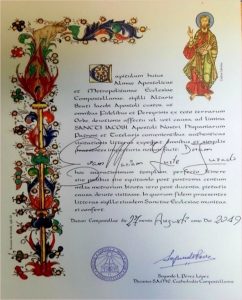 Capitulum huius
Almae Apostolicae
et Metropolitanae Ecclesiae
Compostellanae, sigilli Altaris
Beati Iacobi Apostoli custos, ut
omnibus Fidelibus et Peregrinis ex toto terrarum
Orbe, devotionis affectu vel voti causa, ad limina
SANCTI IACOBI, Apostoli Nostri, Hispaniarum
Patroni et Tutelaris convenientibus, authenticas
visitationis litteras expediat, omnibus et singulis
praesentes inspecturis, notum facit:
hoc sacratissimum templum, perfecto Itinere
sive pedibus sive equitando post postrema centum
milia metrorum, birota vero post ducenta, pietatis
causa, devote visitasse. In quorum fidem praesentes
litteras, sigillo eiusdem Sanctae Ecclesiae munitas
ei confert.
Datum Compostellae die 27 mensis Augusti anno Dni 2019
Segundo L. Pérez López
Decanus S.A.M.E. Cathedralis Compostellanae